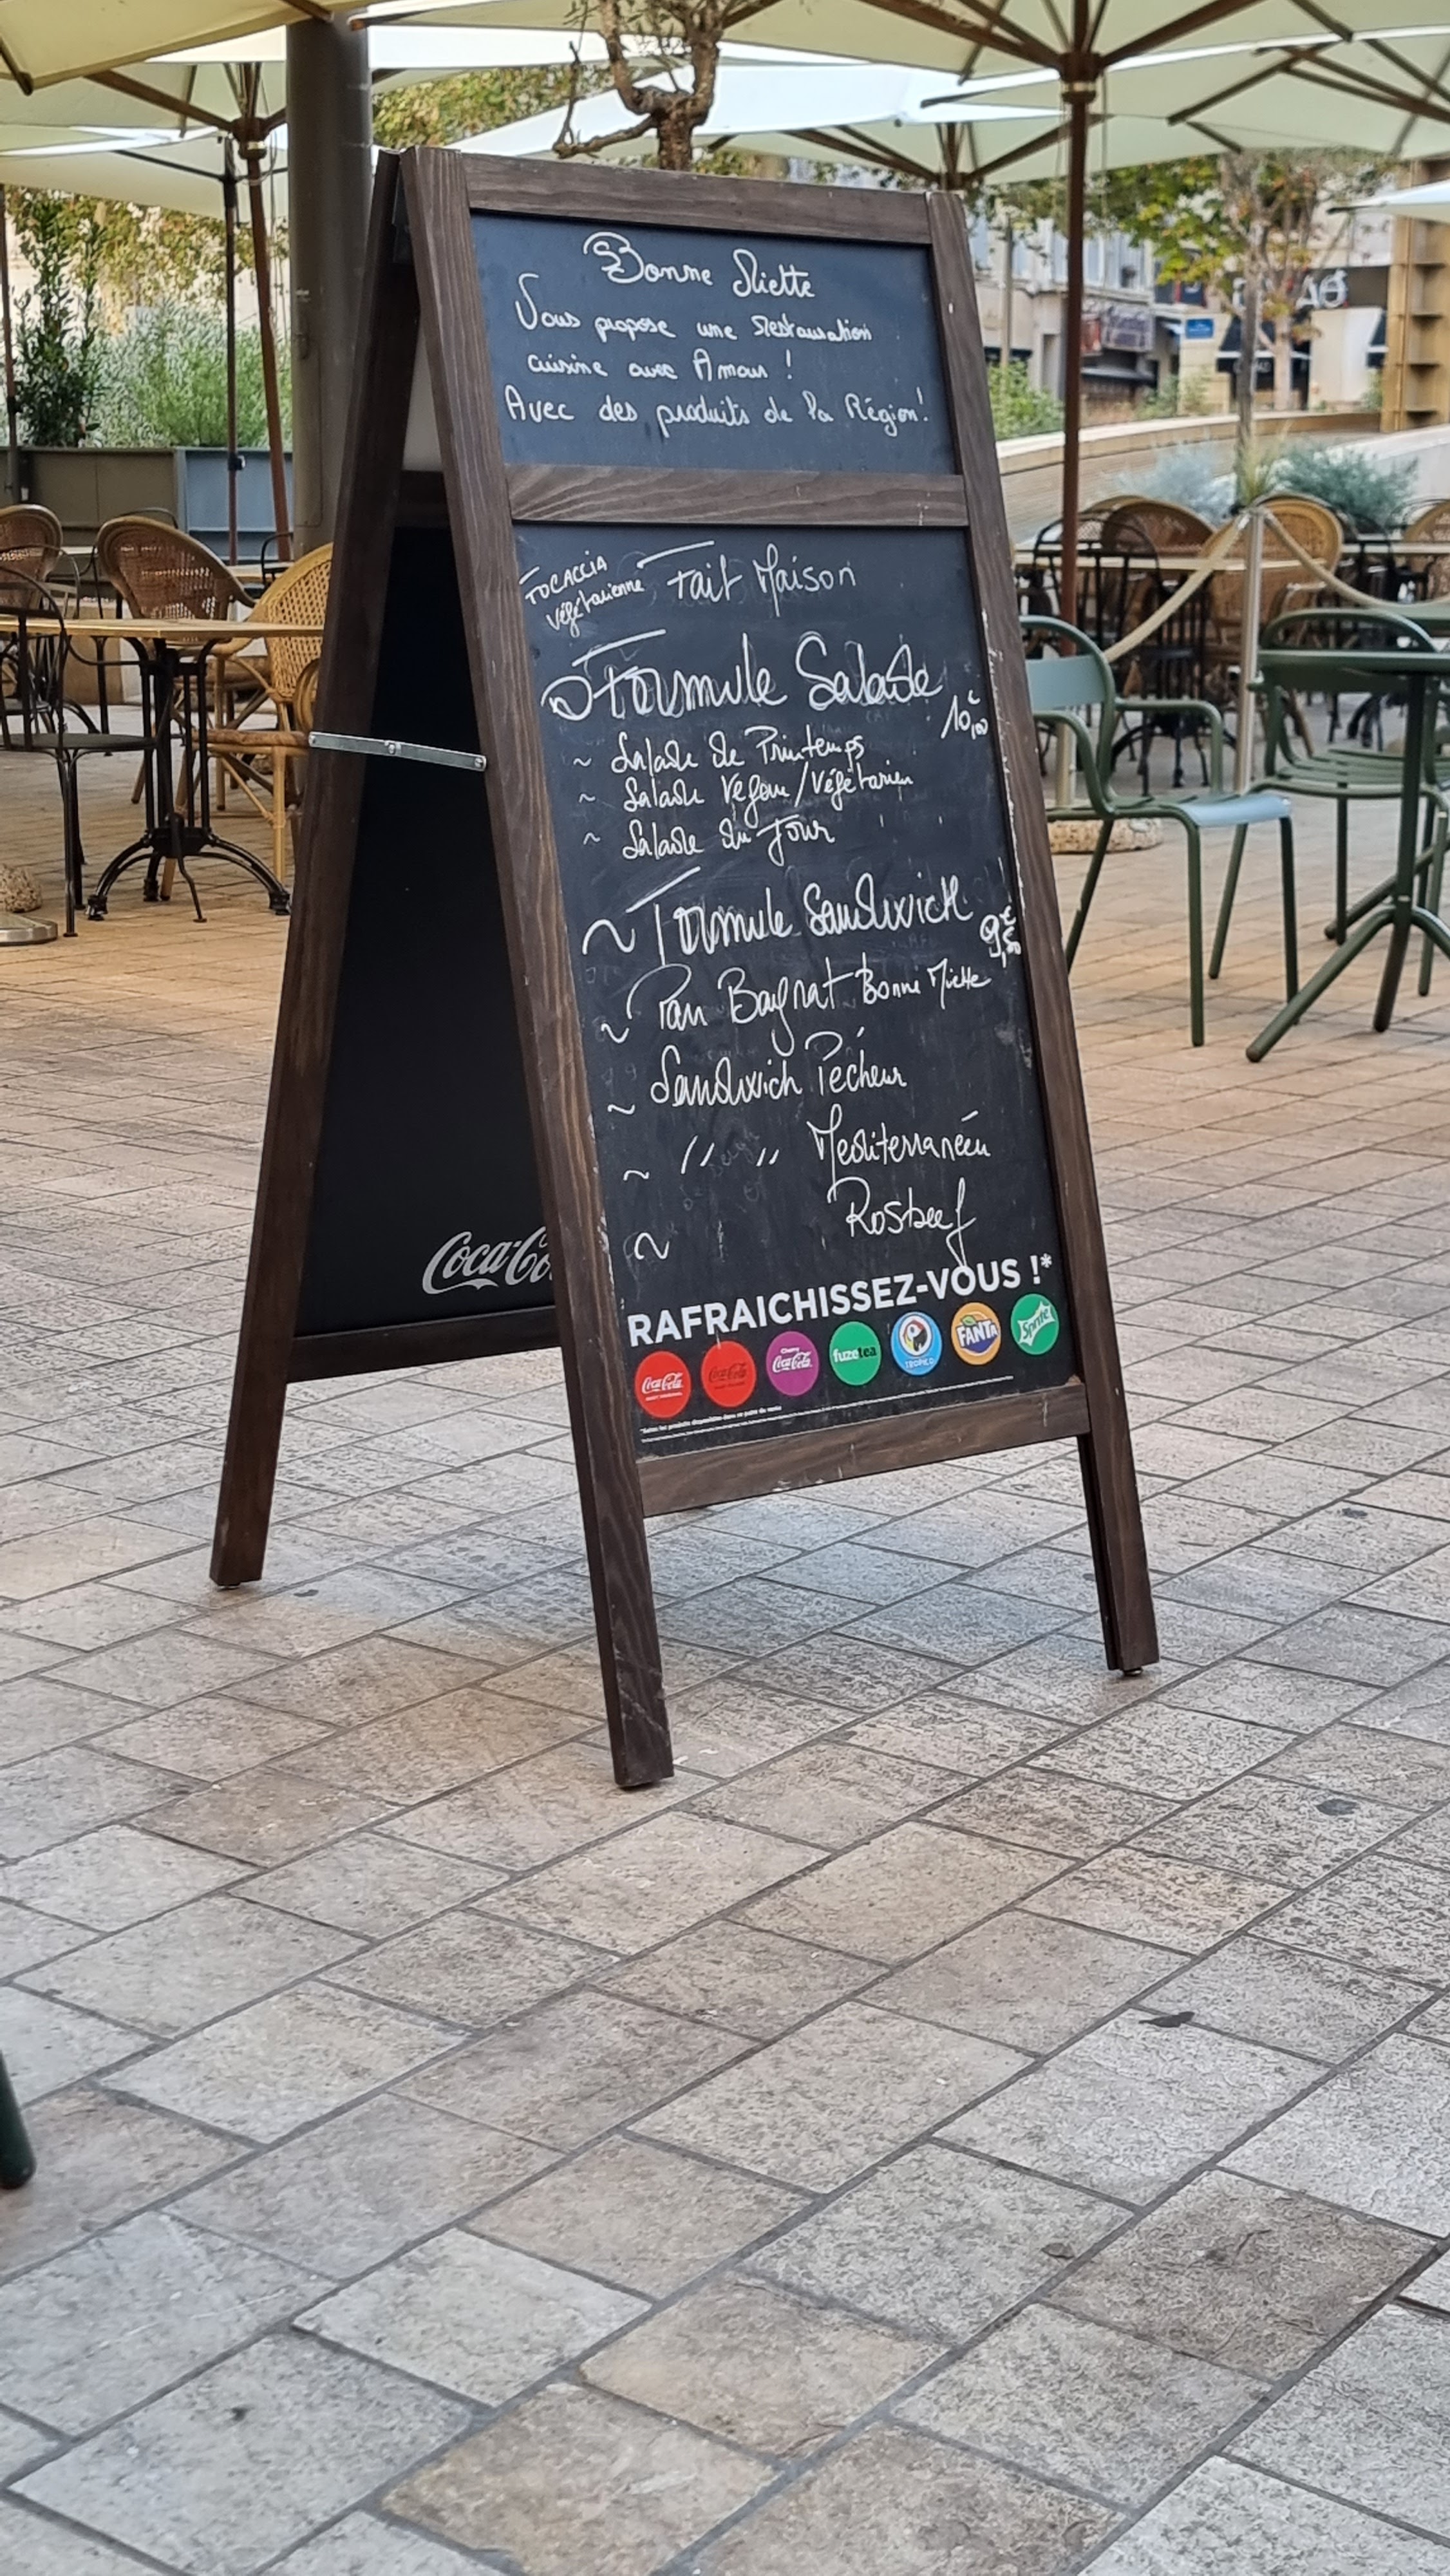 Bonne Miette
Vous propose une Restauration
cuisine avec Amour !
Avec des produits de la Région !
FOCACCIA
végétarienne
Fait Maison
Formule Salade
10€,00
~ Salade de Printemps
~ Salade Vegan/Végétarien
~ Salade du Jour
~ Formule Sandwich
9€,50
~ Pan Bagnat Bonne Miette
~ Sandwich Pécheur
~ " " Mediterranéen
~ Rosbeef
RAFRAICHISSEZ-VOUS !*
Coca-Cola
Coca-Cola
Cherry
Coca-Cola
fuzetea
TROPICO
FANTA
Sprite
*Selon les produits disponibles dans ce point de vente
Coca-Co